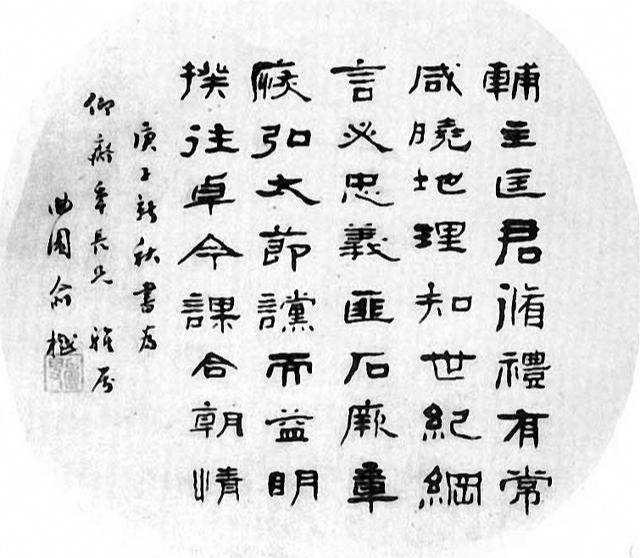 輔主匡君脩禮有常
咸曉地理知世紀綱
言必忠義匪石厥章
恢弘大節讜而益明
揆往卓今謀合朝情
庚子新秋書為
仰長兄 雅屬
曲園俞樾